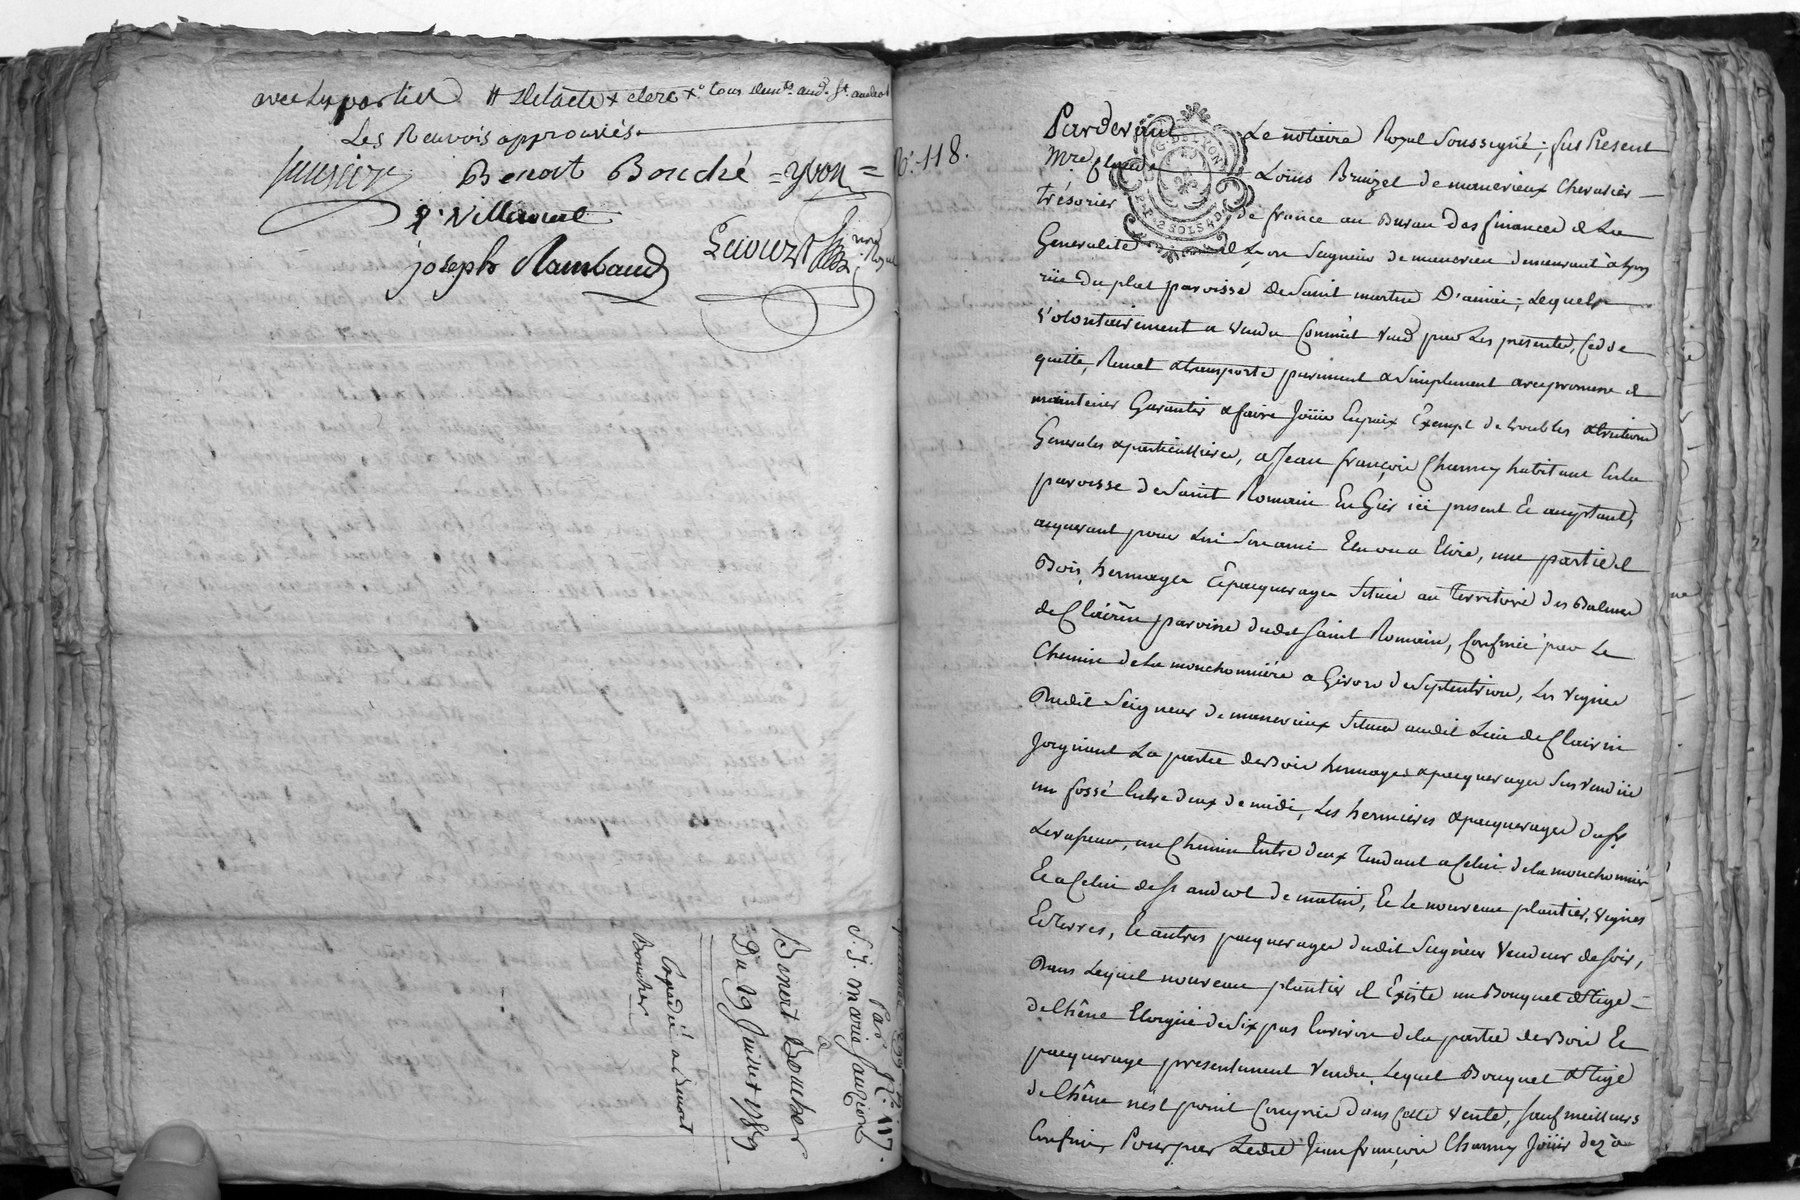 avec les parties # Delacte x clerc x
Les Renvois approuvés
Benoit Bouché = yvon =
joseph Rambaud
No. 118.
quittance
Par No. 117.
S. j. marie
à
Benoit Boucher
Du 19 Juillet 1789
Expedié a Benoit
Boucher
G. DE LYON
2 SOLS 4 D.
Pardevant Le notaire Royal Soussigné; fus Présent
Mre Louis Bruizet de manevieux Chevalier
trésorier de france au Bureau des finances de La
Generalité de Lyon Seigneur de manevieu demeurant à Lyon
rüe du plat paroisse de Saint martin D'ainai; Lequel
volontairement a vendu Comm'il vend par Les presentes, Cedde
quitte, Remet & transporte purement & Simplement avec promesse de
maintenir Garantir & faire Joüir En paix Exempt de troubles & Evictions
Generales & particullieres, a Jean françois Channy habitant En la
paroisse de Saint Romain En Gier ici present Et acceptant,
acquerant pour Lui Son ami Elu ou a Elire, une partie de
Bois, hermages & pacquerages Située au Territoire des Balmes
de Clairin paroisse dudit Saint Romain, Confinée par Le
Chemin de La monchonnière a Givors de Septentrion, Les vignes
Dudit Seigneur de manevieux Situées audit Lieu de Clairin
Joignant La partie de Bois hermages & pacquerages Sus vendüe
un fossé Entre deux de midi, Les hermières & pacquerages du Sr
Levasseur, un Chemin Entre deux Tendant a Celui de la monchonnière
Et a Celui de St andeol de matin, Et Le nouveau plantier, vignes
Et Terres, Et autres pacquerages dudit Seigneur Vendeur de soir,
Dans Lequel nouveau plantier il Existe un Bouquet & tige
de Chêne Eloigné de Six pas Environ de la partie de Bois Et
pacquerage presentement Vendu, Lequel Bouquet & tige
de Chêne n'est point Comprie dans Cette vente, sauf meilleurs
Confins, Pour par Ledit Jean françois Channy Joüir dez à